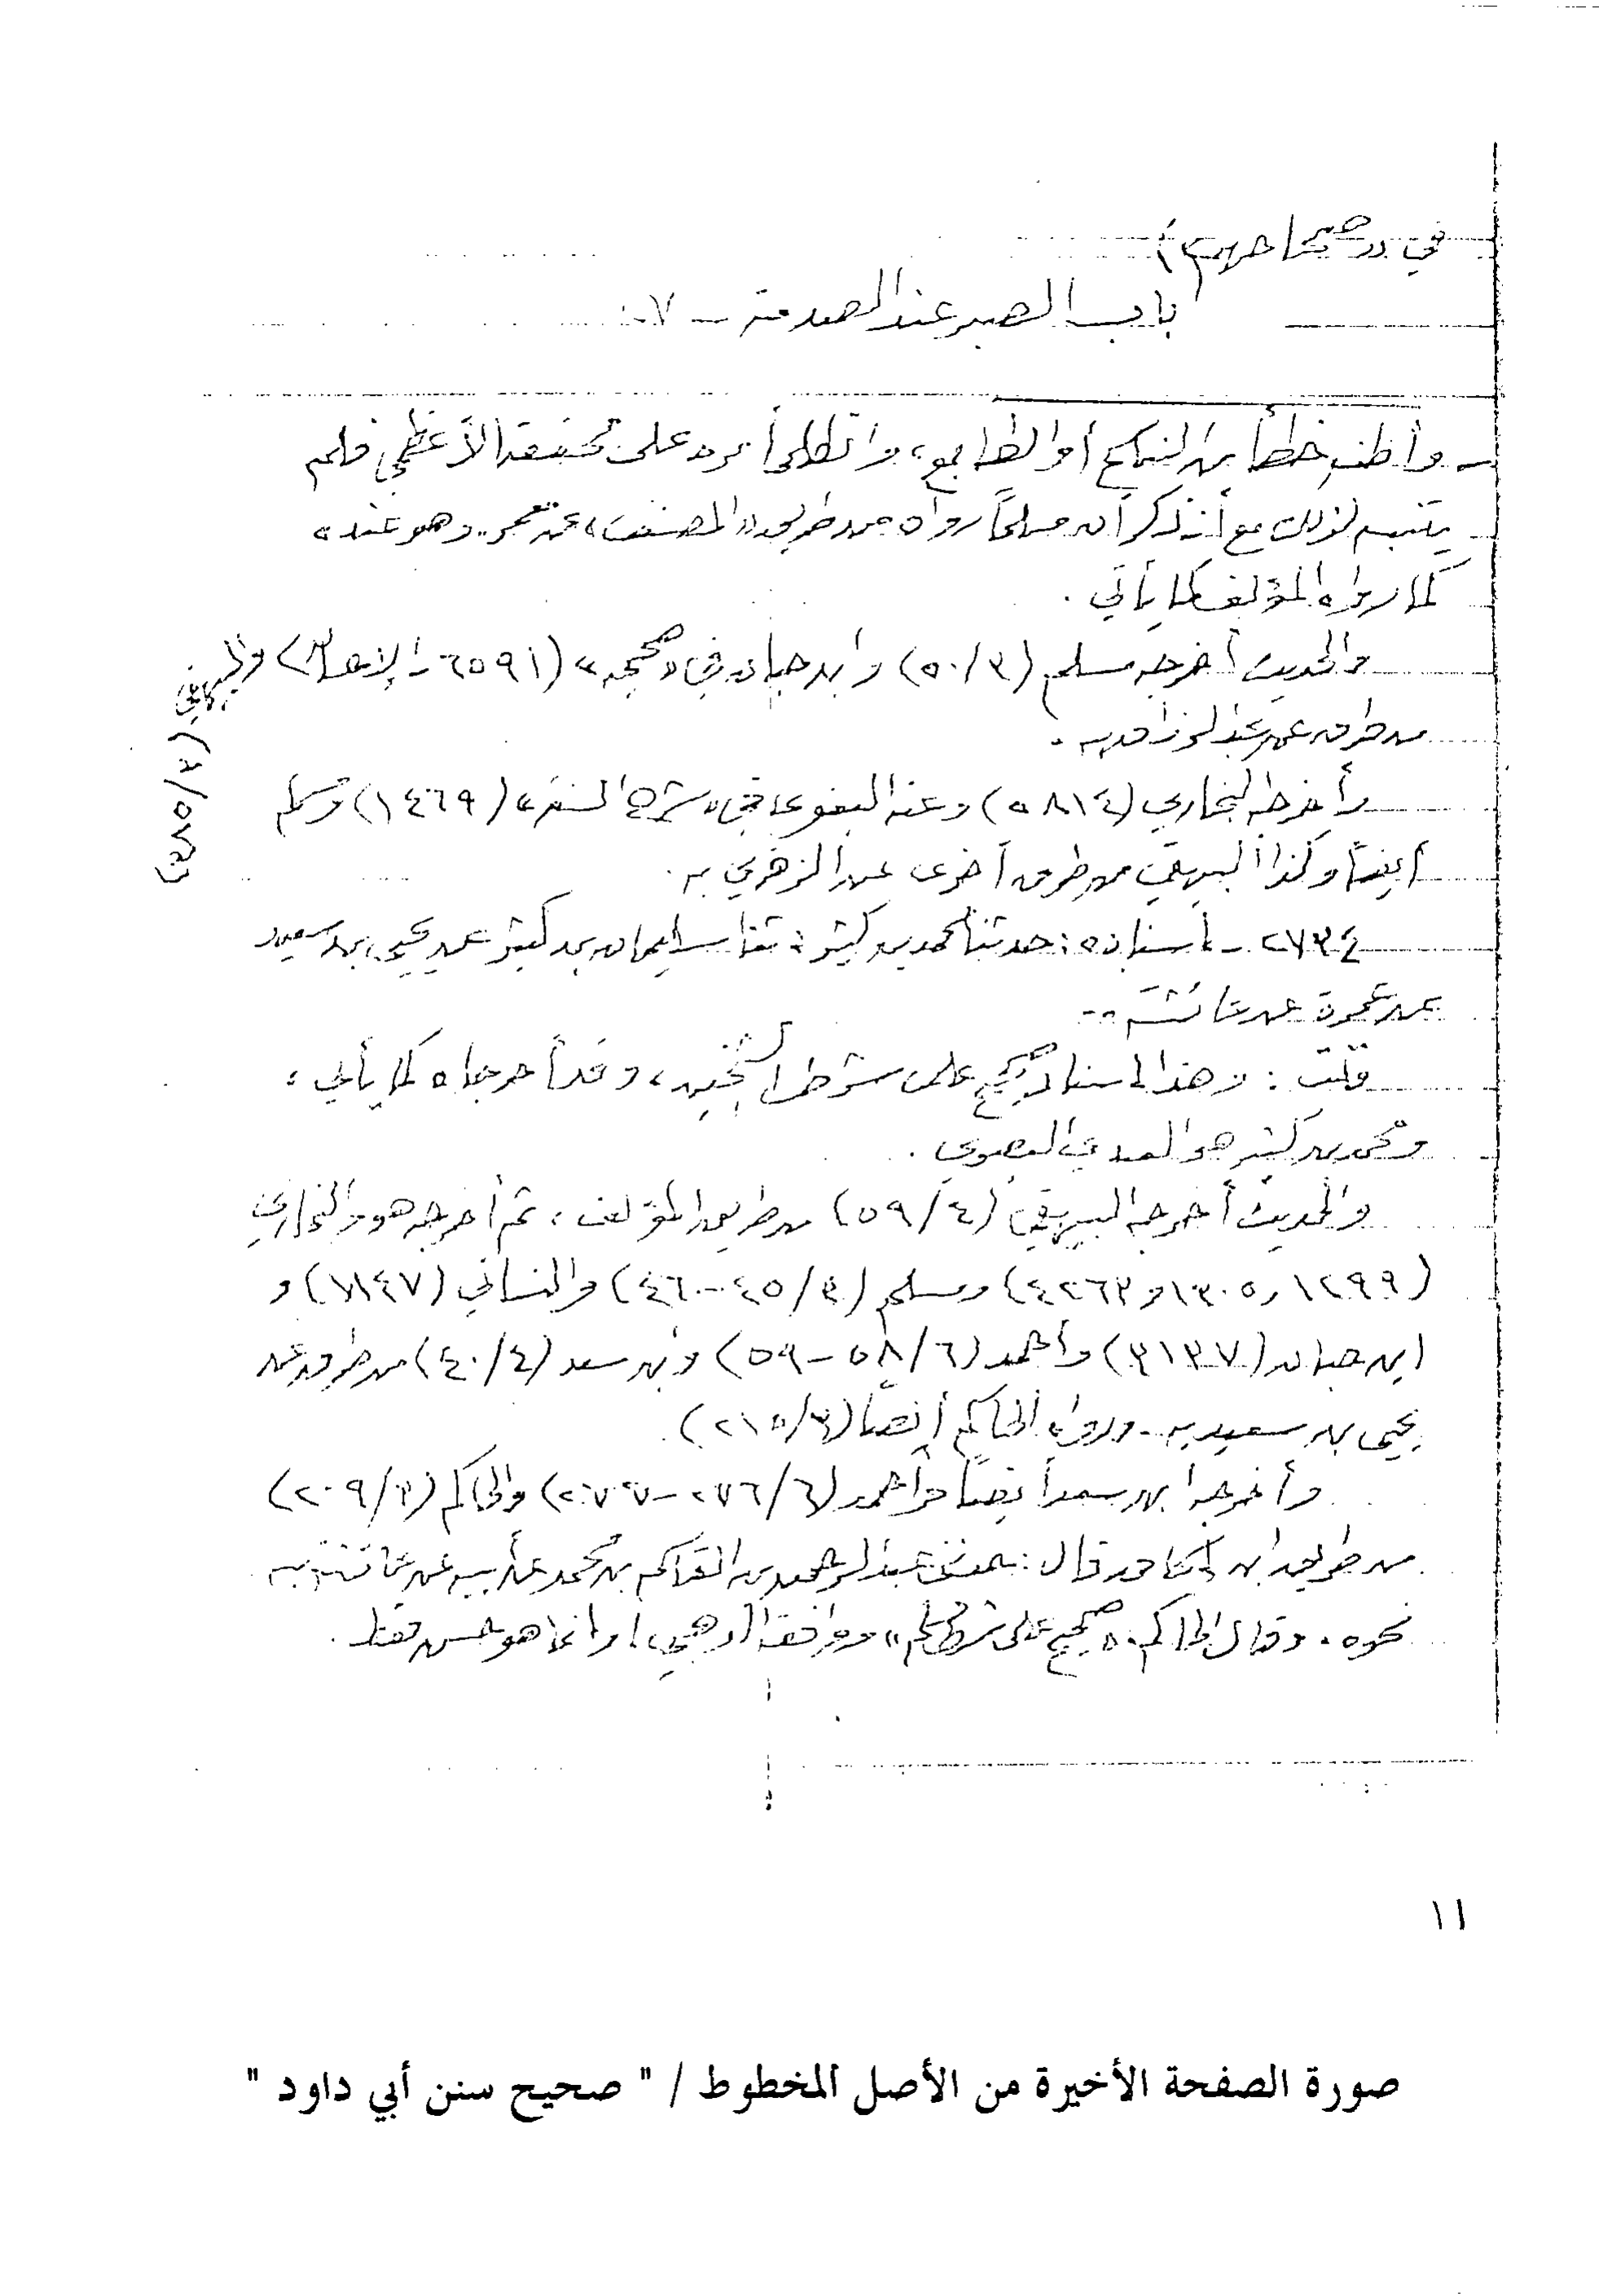 في «صحاحهم»)
باب الصبر عند الصدمة - ٢٧
- وأظنه خطأ من الناسخ أو الطابع، وانطلى أمره على محققه الأعظمي فلم
يتنبه لذلك مع أنه ذكر أن مسلماً رواه من طريق «المصنف» عن معمر.. وهو عنده
كما رواه المؤلف كما يأتي.
والحديث أخرجه مسلم (٣/٥٠) وابن حبان في «صحيحه» (٦٥٩١ - الإحسان) والبيهقي
من طرق عن عبد الرزاق به.
وأخرجه البخاري (٥٨١٤) وعنه البغوي في «شرح السنة» (١٤٦٩) ومسلم
أيضاً وكذا البيهقي من طرق أخرى عن الزهري به.
٢٧٣٤ - إسناده: حدثنا محمد بن كثير: ثنا سليمان بن كثير عن يحيى بن سعيد
عن عمرة عن عائشة..
قلت: وهذا إسناد صحيح على شرط الشيخين، وقد أخرجاه كما يأتي،
ومحمد بن كثير هو العبدي البصري.
والحديث أخرجه البيهقي (٤/٥٩) من طريق المؤلف، ثم أخرجه هو والبخاري
(١٢٩٩ و ١٣٠٥ و ٤٢٦٣) ومسلم (٣/٤٥-٤٦) والنسائي (١٨٤٧) و
ابن حبان (٣١٣٧) وأحمد (٦/٥٨-٥٩) وابن سعد (٤/٤٠) من طرق عن
يحيى بن سعيد به. ورواه الحاكم أيضاً (٣/٢١٥).
وأخرجه ابن سعد أيضاً وأحمد (٦/٢٧٦-٢٧٧) والحاكم (٣/٢٠٩)
من طريق ابن إسحاق قال: حدثني عبد الرحمن بن القاسم بن محمد عن أبيه عن عائشة به
نحوه. وقال الحاكم: «صحيح على شرط مسلم» ووافقه الذهبي! وإنما هو حسن فقط.
١١
صورة الصفحة الأخيرة من الأصل المخطوط / " صحيح سنن أبي داود "